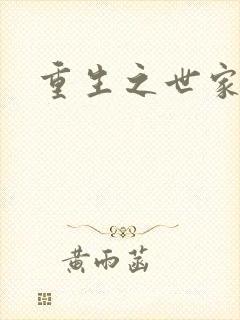 重生之世家
黄雨菡